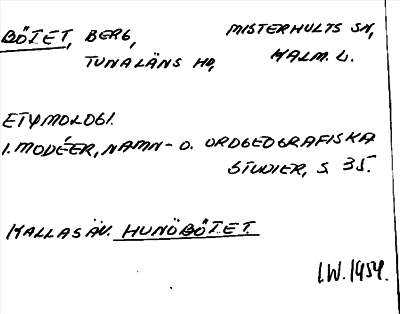 BÖTET, BERG, MISTERHULTS SN,
TUNALÄNS HD, KALM. L.
ETYMOLOGI.
I. MODÉER, NAMN- O. ORDGEOGRAFISKA
STUDIER, S. 35.
KALLAS ÄV. HUNÖBÖTET.
I.W. 1954.